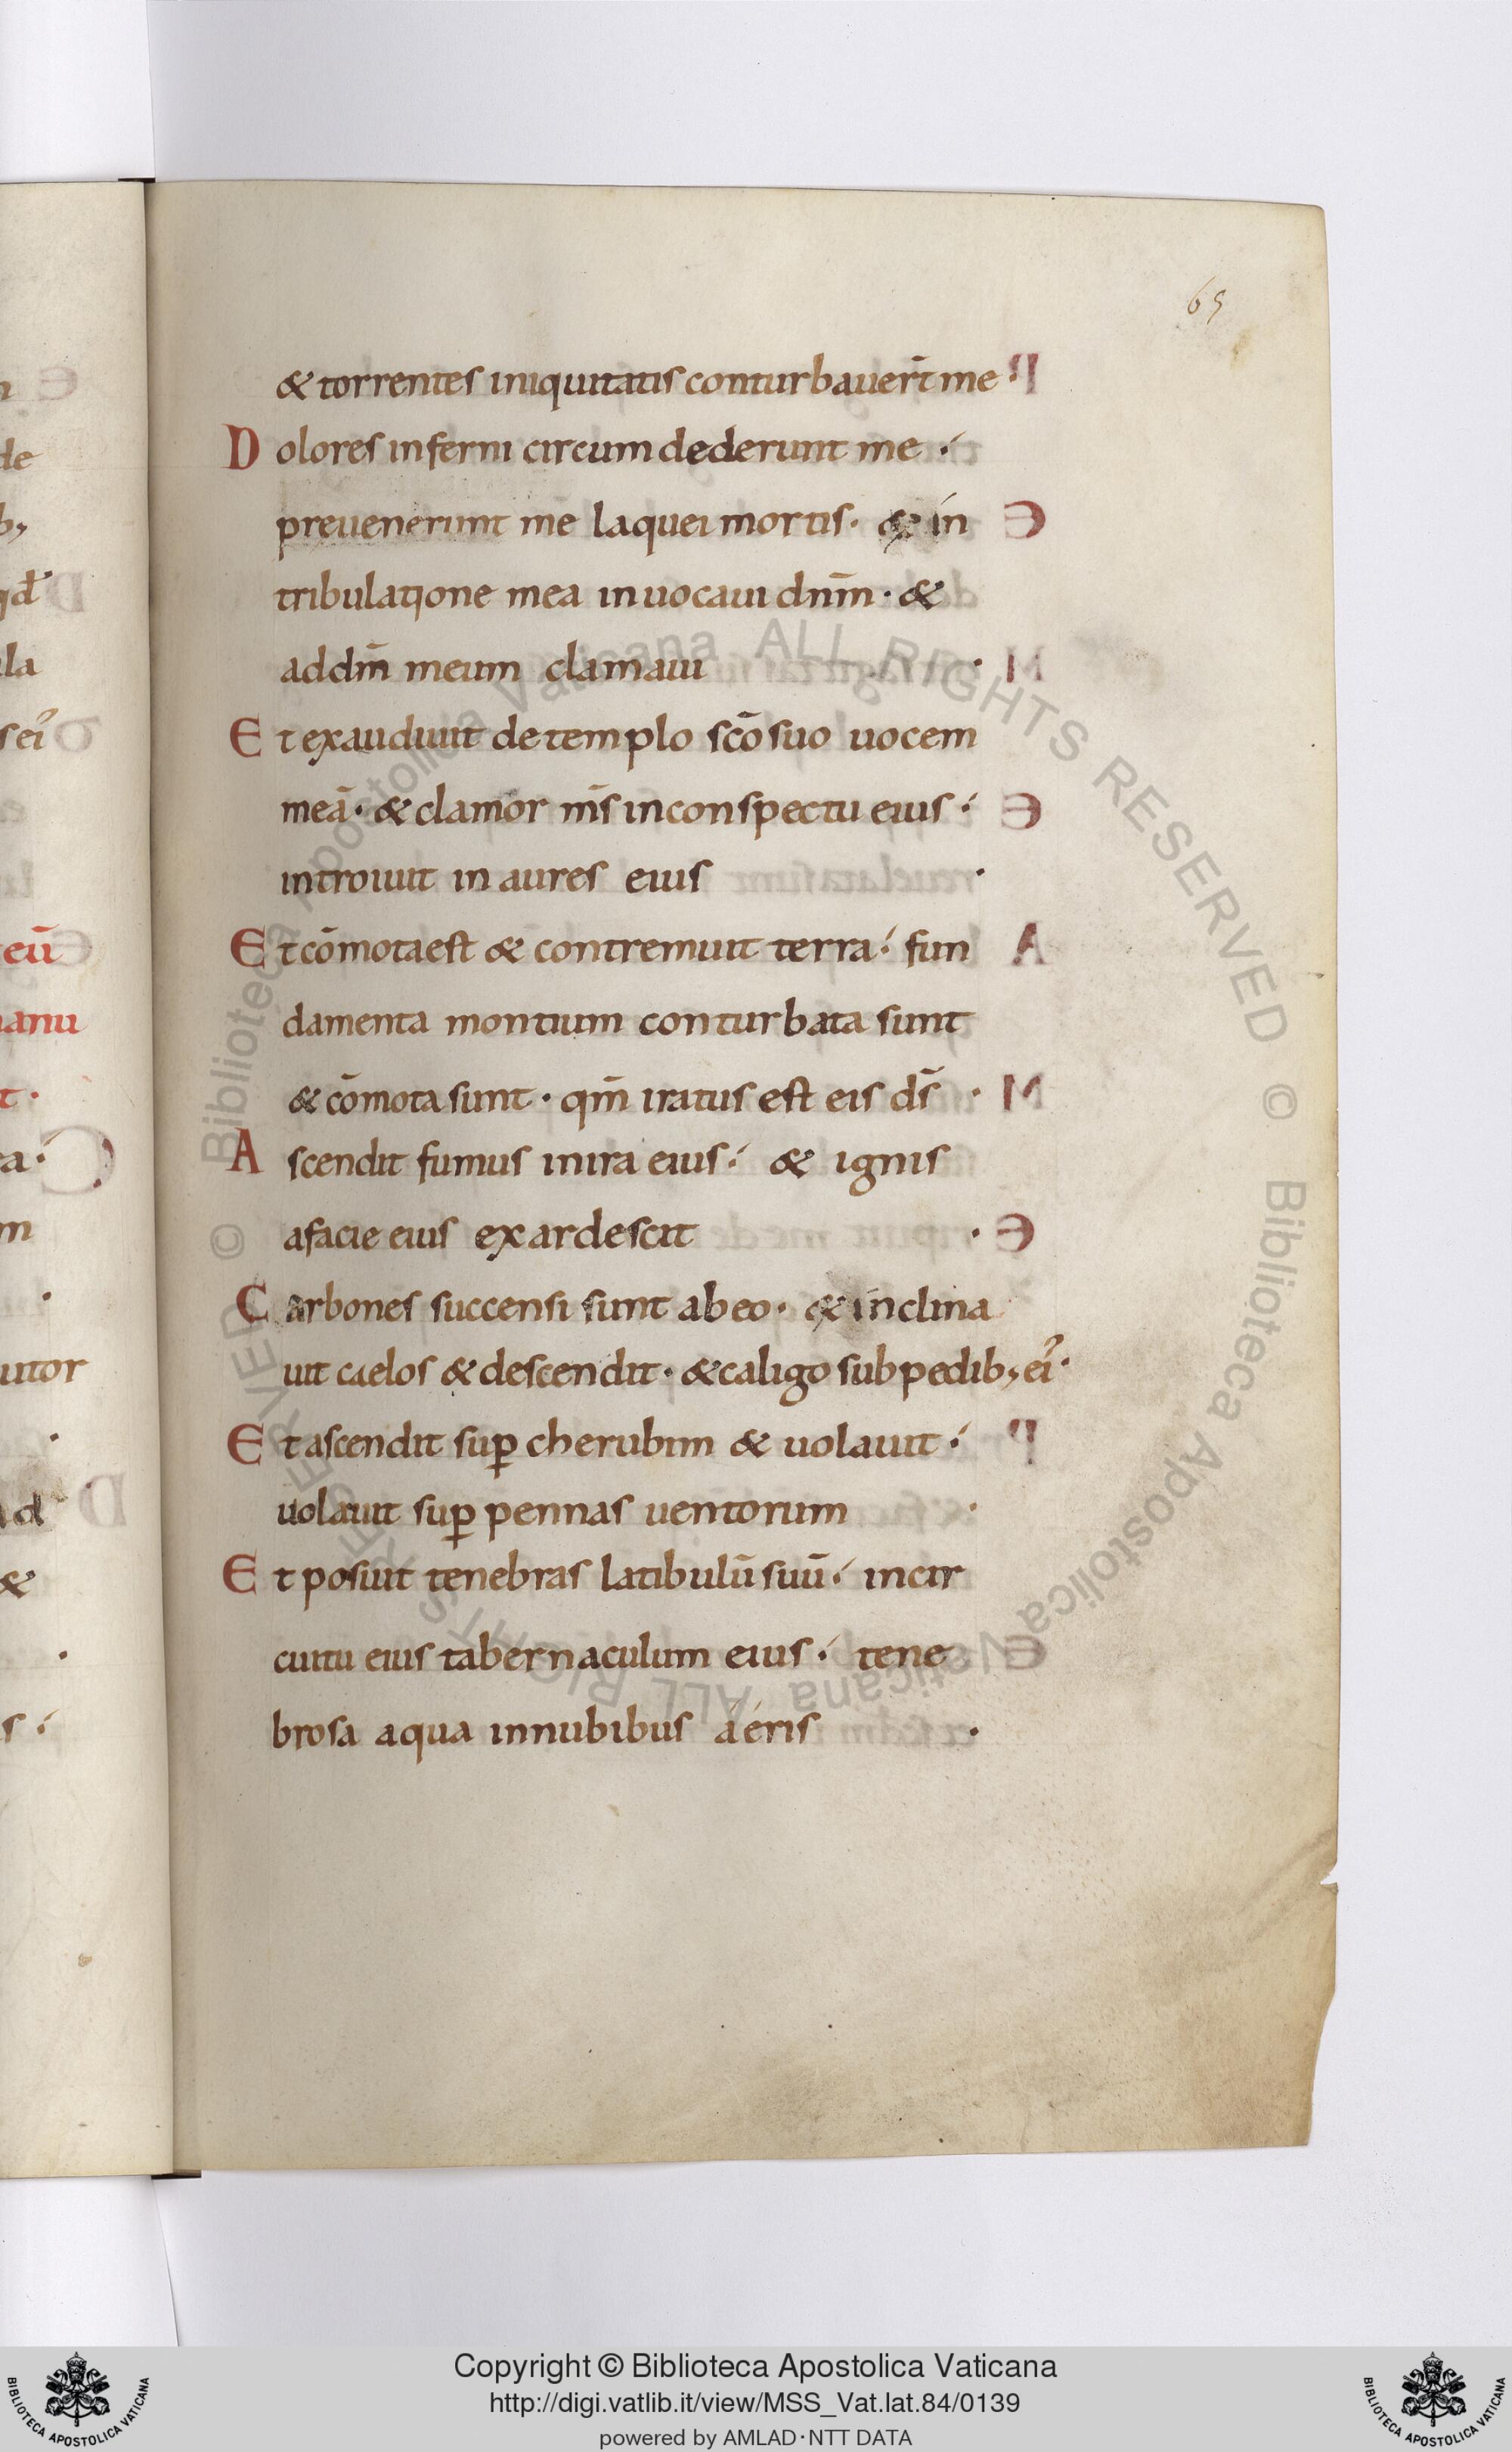 65
& torrentes iniquitatis conturbauer̄t me ·
Dolores inferni circumdederunt me ·
preuenerunt me laquei mortis · & in
tribulatione mea inuocaui dnm̄ · &
addm̄ meum clamaui ·
Et exaudiuit de templo sc̄o suo uocem
meā · & clamor ms̄ inconspectu eius ·
introiuit in aures eius ·
Et com̄ota est & contremuit terra · fun
damenta montium conturbata sunt
& com̄ota sunt · qm̄ iratus est eis ds̄ ·
Ascendit fumus inira eius · & ignis
afacie eius exardescit ·
Carbones succensi sunt abeo · & inclina
uit caelos & descendit · & caligo sub pedib; ei᾽ ·
Et ascendit suꝑ cherubim & uolauit ·
uolauit suꝑ pennas uentorum ·
Et posuit tenebras latibulū suū · incir
cuitu eius tabernaculum eius · tene
brosa aqua innubibus aéris ·
© Biblioteca Apostolica Vaticana ALL RIGHTS RESERVED © Biblioteca Apostolica Vaticana ALL RIGHTS RESERVED
Copyright © Biblioteca Apostolica Vaticana
http://digi.vatlib.it/view/MSS_Vat.lat.84/0139
powered by AMLAD·NTT DATA
BIBLIOTECA APOSTOLICA VATICANA
BIBLIOTECA APOSTOLICA VATICANA